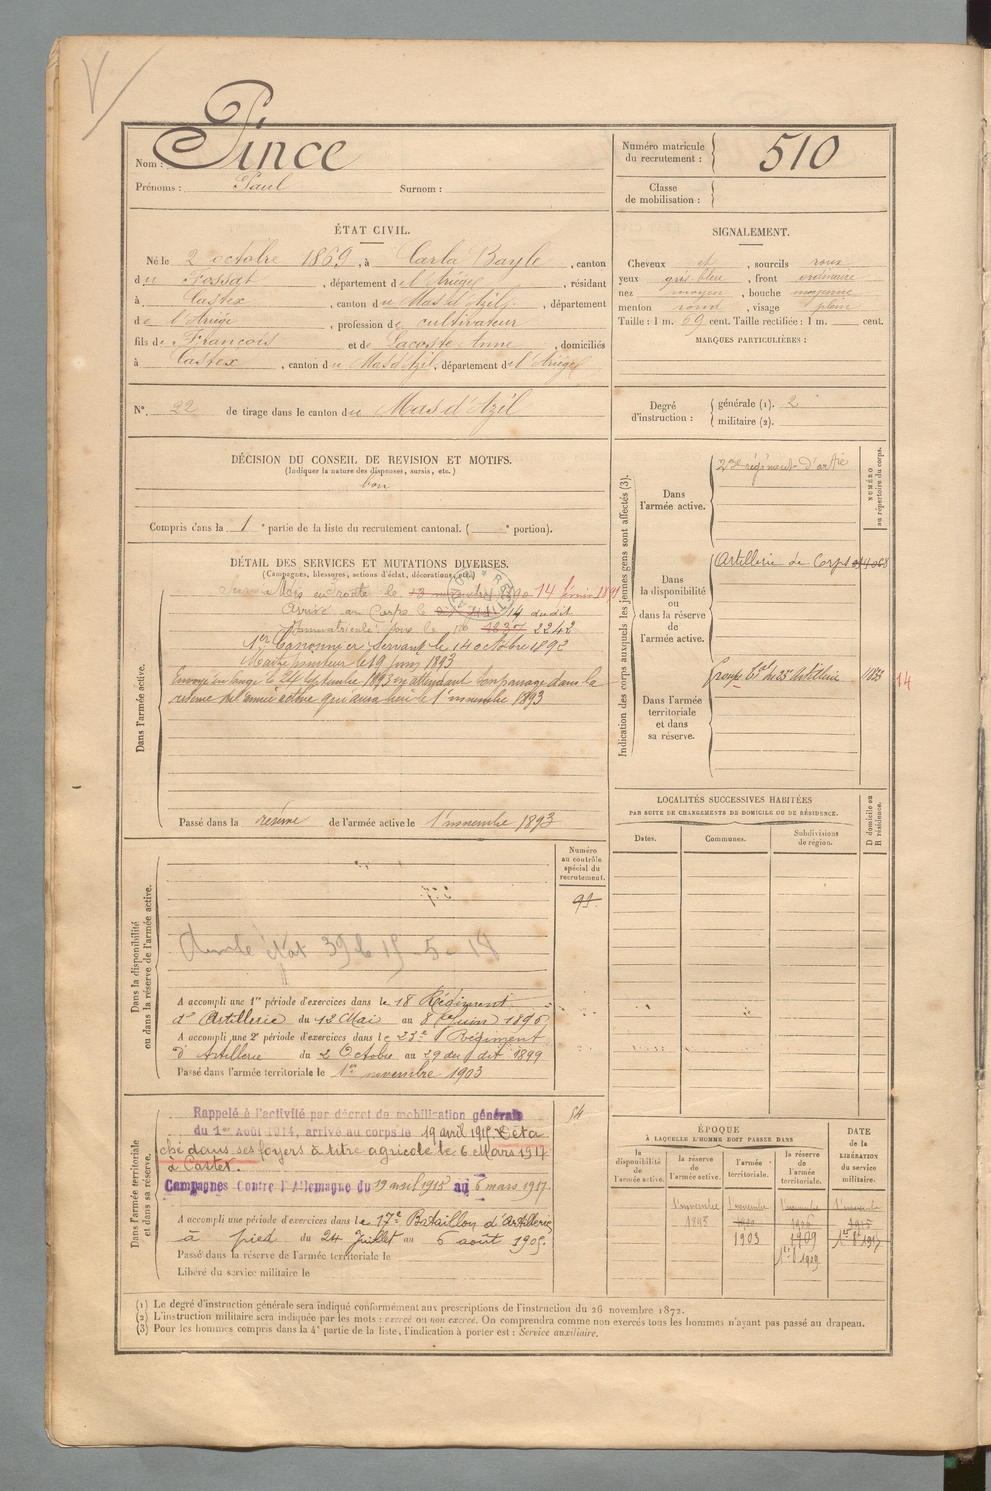 Nom : Pince
Prénoms : Paul Surnom :
Numéro matricule du recrutement : 510
Classe de mobilisation :
ÉTAT CIVIL.
Né le 2 octobre 1869, à Carla Bayle, canton
du Fossat, département de l'Ariège, résidant
à Castex, canton du Mas d'Azil, département
de l'Ariège, profession de cultivateur
fils de François et de Lacoste Anne, domiciliés
à Castex, canton du Mas d'Azil, département de l'Ariège
N°. 22 de tirage dans le canton du Mas d'Azil
SIGNALEMENT.
Cheveux et, sourcils roux
yeux gris bleu, front ordinaire
nez moyen, bouche moyenne
menton rond, visage plein
Taille : 1 m. 69 cent. Taille rectifiée : 1 m. cent.
MARQUES PARTICULIÈRES :
Degré d'instruction : générale (1). 2
militaire (2).
DÉCISION DU CONSEIL DE REVISION ET MOTIFS.
(Indiquer la nature des dispenses, sursis, etc.)
bon
Compris dans la 1e partie de la liste du recrutement cantonal. ( e portion).
DÉTAIL DES SERVICES ET MUTATIONS DIVERSES.
(Campagnes, blessures, actions d'éclat, décorations, etc.)
Dans l'armée active.
Mis en route le 13 novembre 1890 14 février 1891
Arrivé au Corps le 14 dudit
Immatriculé sous le No 2242
1er Canonnier Servant le 14 octobre 1892
Maitre pointeur le 19 juin 1893
Envoyé en congé le 24 septembre 1893 en attendant son passage dans la
réserve de l'armée active qui aura lieu le 1er novembre 1893
Passé dans la réserve de l'armée active le 1er novembre 1893
Indication des corps auxquels les jeunes gens sont affectés (3).
NUMÉRO au répertoire du corps.
Dans l'armée active.
23e régiment d'artie
Dans la disponibilité ou dans la réserve de l'armée active.
Artillerie de Corps
Dans l'armée territoriale et dans sa réserve.
Groupe tal du 23e Artillerie
14
LOCALITÉS SUCCESSIVES HABITÉES
PAR SUITE DE CHANGEMENTS DE DOMICILE OU DE RÉSIDENCE.
Dates. Communes. Subdivisions de région. D domicile ou R résidence.
Dans la disponibilité ou dans la réserve de l'armée active.
Numéro au contrôle spécial du recrutement.
91
15-5-18
A accompli une 1re période d'exercices dans le 18 Régiment
d'Artillerie du 12 Mai au 8 Juin 1896
A accompli une 2e période d'exercices dans le 23e Régiment
d'Artillerie du 2 Octobre au 29 du dit 1899
Passé dans l'armée territoriale le 1er novembre 1903
Dans l'armée territoriale et dans sa réserve.
54
Rappelé à l'activité par décret de mobilisation générale
du 1er Août 1914, arrivé au corps le 19 avril 1915 Déta
ché dans ses foyers à titre agricole le 6 Mars 1917
à Castex.
Campagnes Contre l'Allemagne du 19 avril 1915 au 6 mars 1917.
A accompli une période d'exercices dans le 17e Bataillon d'Artillerie
à pied du 24 Juillet au 6 août 1905.
Passé dans la réserve de l'armée territoriale le
Libéré du service militaire le
ÉPOQUE
À LAQUELLE L'HOMME DOIT PASSER DANS
la disponibilité de l'armée active. la réserve de l'armée active. l'armée territoriale. la réserve de l'armée territoriale. DATE de la LIBÉRATION du service militaire.
1er novembre 1er novembre 1er novembre 1er novembre
1893 1900 1906 1915
1903 1909
(1) Le degré d'instruction générale sera indiqué conformément aux prescriptions de l'instruction du 26 novembre 1872.
(2) L'instruction militaire sera indiquée par les mots : exercé ou non exercé. On comprendra comme non exercés tous les hommes n'ayant pas passé au drapeau.
(3) Pour les hommes compris dans la 4e partie de la liste, l'indication à porter est : Service auxiliaire.